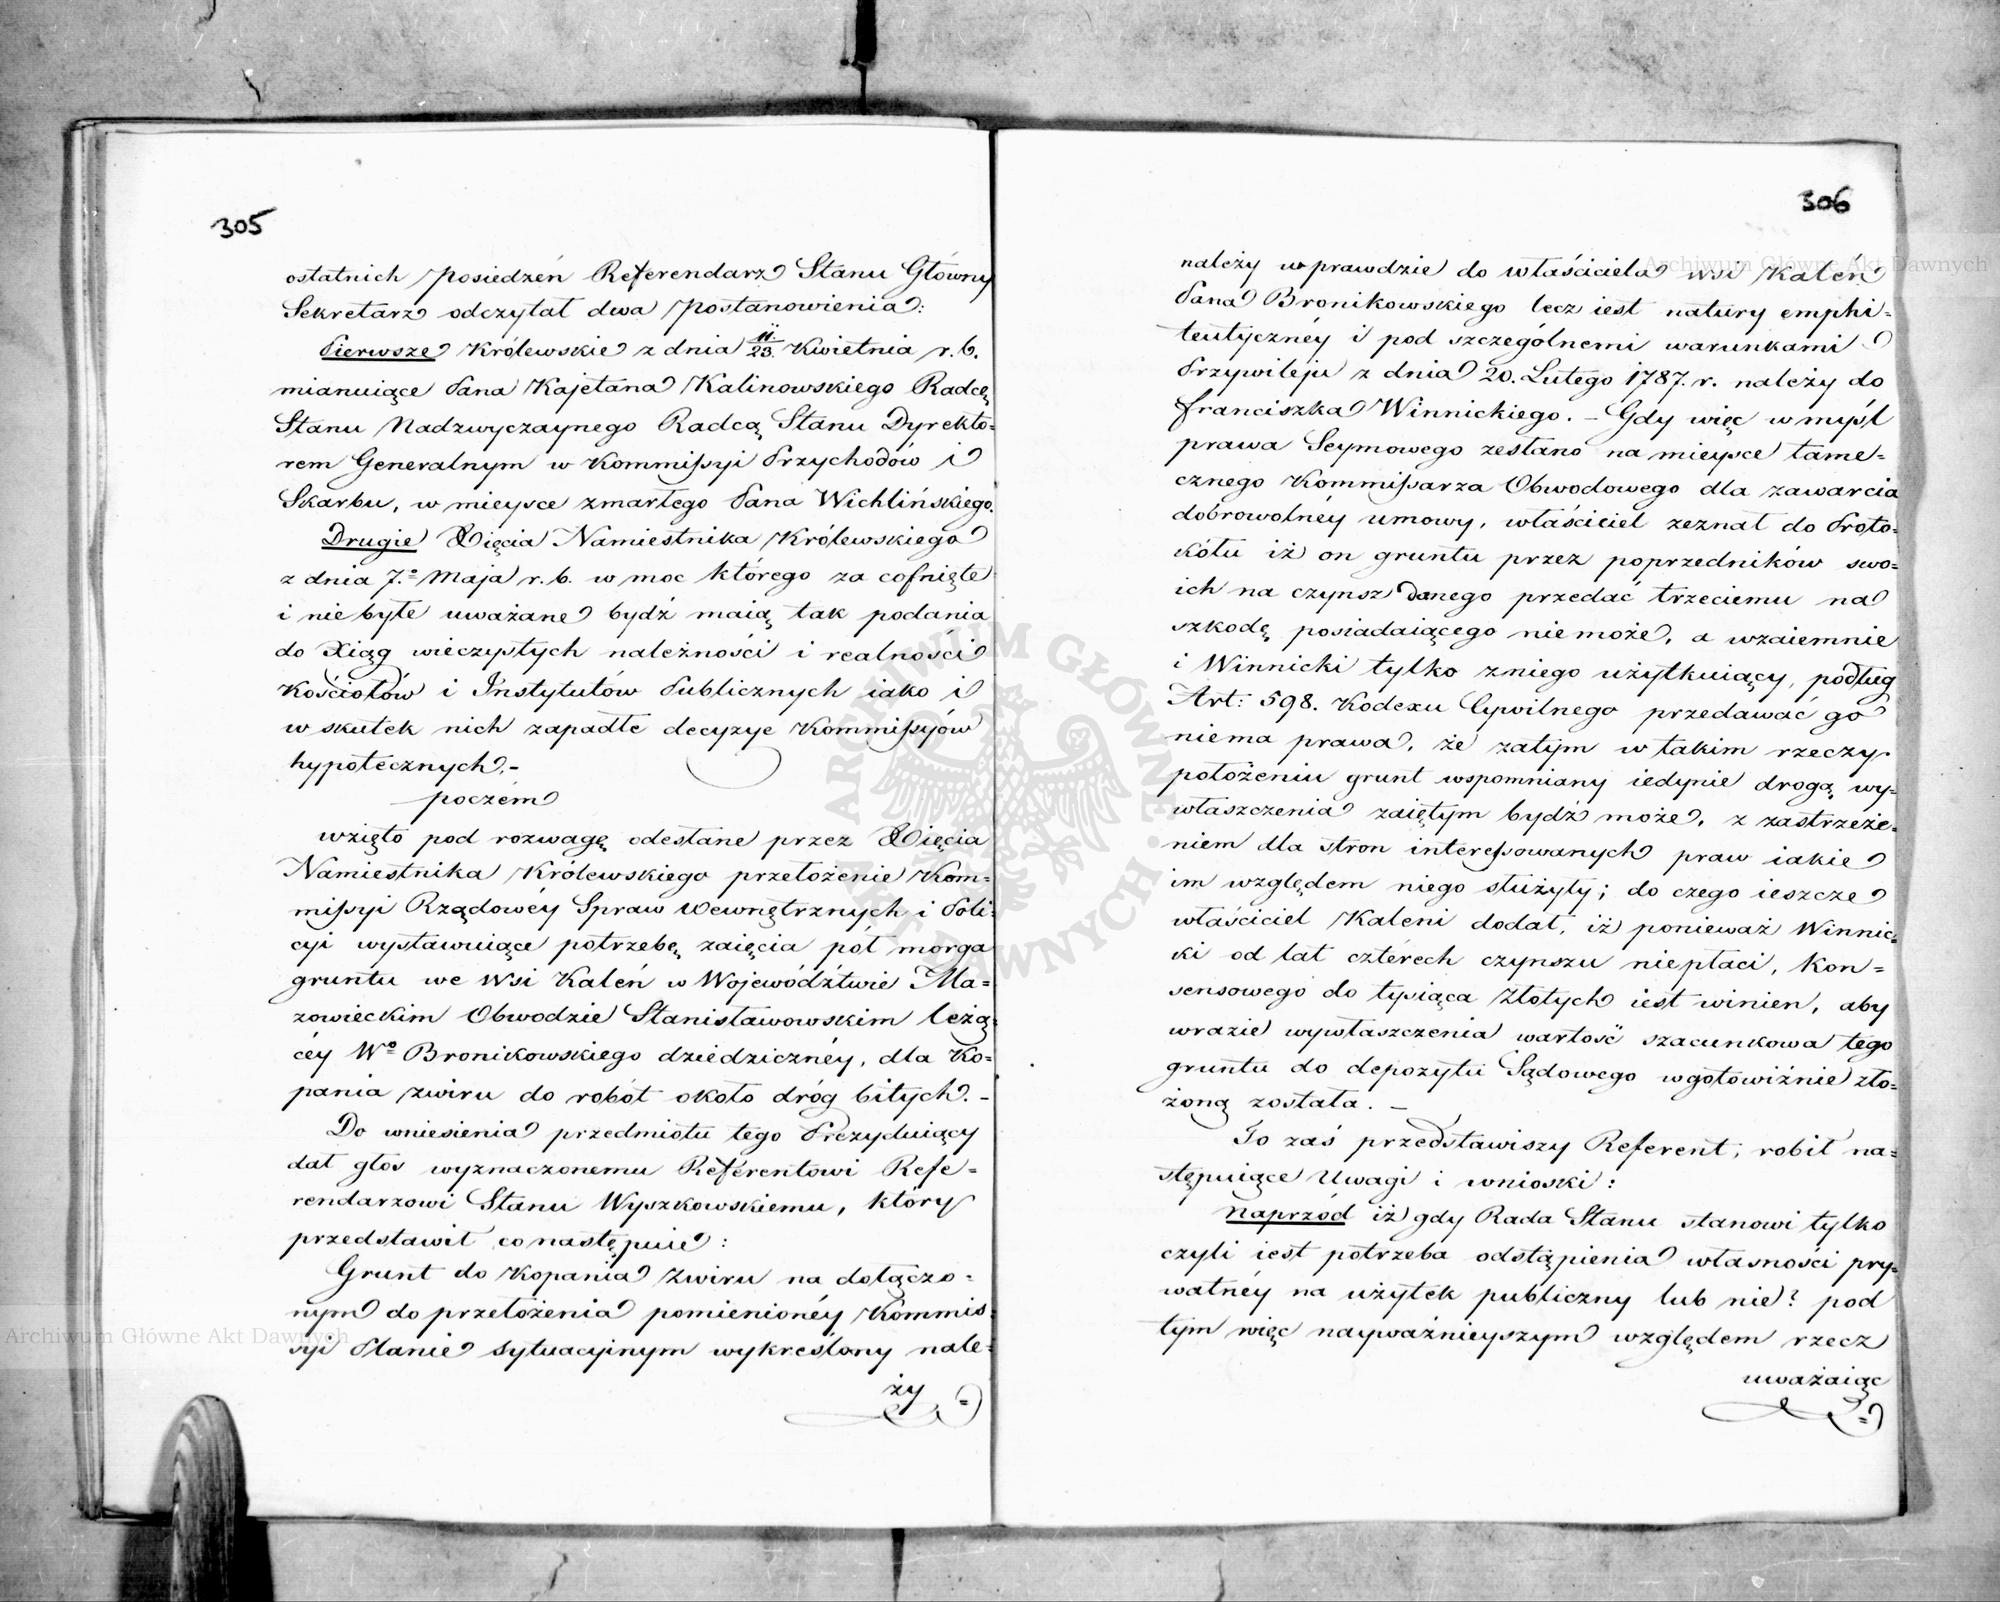 305
ostatnich posiedzeń Referendarz Stanu Główny
Sekretarz odczytał dwa postanowienia:
Pierwsze Królewskie z dnia 11/23. Kwietnia r. b.
mianuiące Pana Kajetana Kalinowskiego Radcę
Stanu Nadzwyczaynego Radcą Stanu Dyrekto=
rem Generalnym w Kommißyi Przychodów i
Skarbu, w mieysce zmarłego Pana Wichlińskiego.
Drugie Xięcia Namiestnika Królewskiego
z dnia 7.º Maja r. b. w moc którego za cofnięte
i nie byłe uważane bydź maią tak podania
do Xiąg wieczystych należności i realności
Kościołów i Instytutów Publicznych iako i
w skutek nich zapadłe decyzye Kommißyów
hypotecznych.-
poczém
wzięto pod rozwagę odesłane przez Xięcia
Namiestnika Królewskiego przełożenie Kom=
mißyi Rządowéy Spraw Wewnętrznych i Poli=
cyi wystawuiące potrzebę zaięcia pół morga
gruntu we Wsi Kaleń w Województwie Ma=
zowieckim Obwodzie Stanisławowskim leżą=
céy Wº Bronikowskiego dziedzicznéy, dla ko=
pania żwiru do robót około dróg bitych. -
Do wniesienia przedmiotu tego Prezyduiący
dał głos wyznaczonemu Referentowi Refe=
rendarzowi Stanu Wyszkowskiemu, który
przedstawił co następuie:
Grunt do kopania żwiru na dołączo=
nym do przełożenia pomienionéy Kommis=
syi Planie sytuacyinym wykreślony nale=
ży
306
należy wprawdzie do właściciela wsi Kaleń
Pana Bronikowskiego lecz iest natury emphi=
teutycznéy i pod szczególnemi warunkami
Przywileju z dnia 20. Lutego 1787. r. należy do
Franciszka Winnickiego. - Gdy więc w myśl
prawa Seymowego zesłano na mieysce tame=
cznego Kommißarza Obwodowego dla zawarcia
dobrowolnéy umowy, właściciel zeznał do Proto=
kółu iż on gruntu przez poprzedników swo=
ich na czynsz danego przedać trzeciemu na
szkodę posiadaiącego nie może, a wzaiemnie
i Winnicki tylko z niego użytkuiący, podług
Art: 598. Kodexu Cywilnego przedawać go
niema prawa, że zatym w takim rzeczy
położeniu grunt wspomniany iedynie drogą wy=
właszczenia zaiętym bydź może, z zastrzeże=
niem dla stron intereßowanych praw iakie
im względem niego służyły; do czego ieszcze
właściciel Kaleni dodał, iż ponieważ Winnic=
ki od lat czterech czynszu niepłaci, kon=
sensowego do tysiąca Złotych iest winien, aby
wrazie wywłaszczenia wartość szacunkowa tego
gruntu do depozytu Sądowego wgotowiźnie zło=
żoną została. -
To zaś przedstawiszy Referent, robił na=
stępuiące Uwagi i wnioski:
Naprzód iż gdy Rada Stanu stanowi tylko
czyli iest potrzeba odstąpienia własności pry=
watnéy na użytek publiczny lub nie? pod
tym więc nayważnieyszym względem rzecz
uważaiąc
Archiwum Główne Akt Dawnych
Archiwum Główne Akt Dawnych
ARCHIWUM GŁÓWNE AKT DAWNYCH